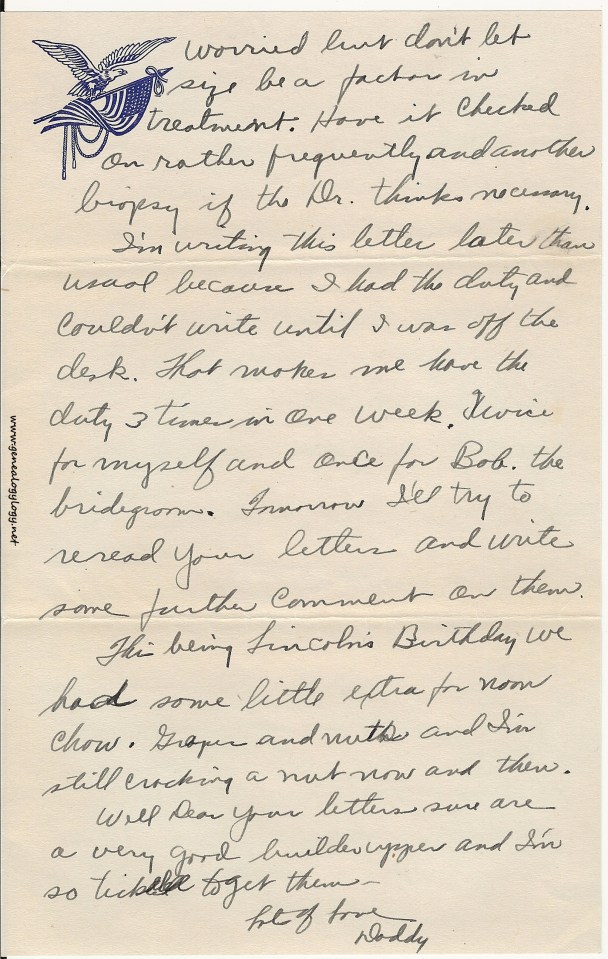 worried but don't let
size be a factor in
treatment. Have it checked
on rather frequently and another
biopsy if the Dr. thinks necessary.
I'm writing this letter later than
usual because I had the duty and
couldn't write until I was off the
desk. That makes me have the
duty 3 times in one week. Twice
for myself and once for Bob. the
bridegroom. Tomorrow I'll try to
reread your letters and write
some further comment on them.
This being Lincoln's Birthday we
had some little extra for noon
chow. Grapes and nuts and I'm
still cracking a nut now and then.
Well Dear your letters sure are
a very good builder upper and I'm
so tickled to get them—
Lots of Love
Daddy
www.genealogyology.net